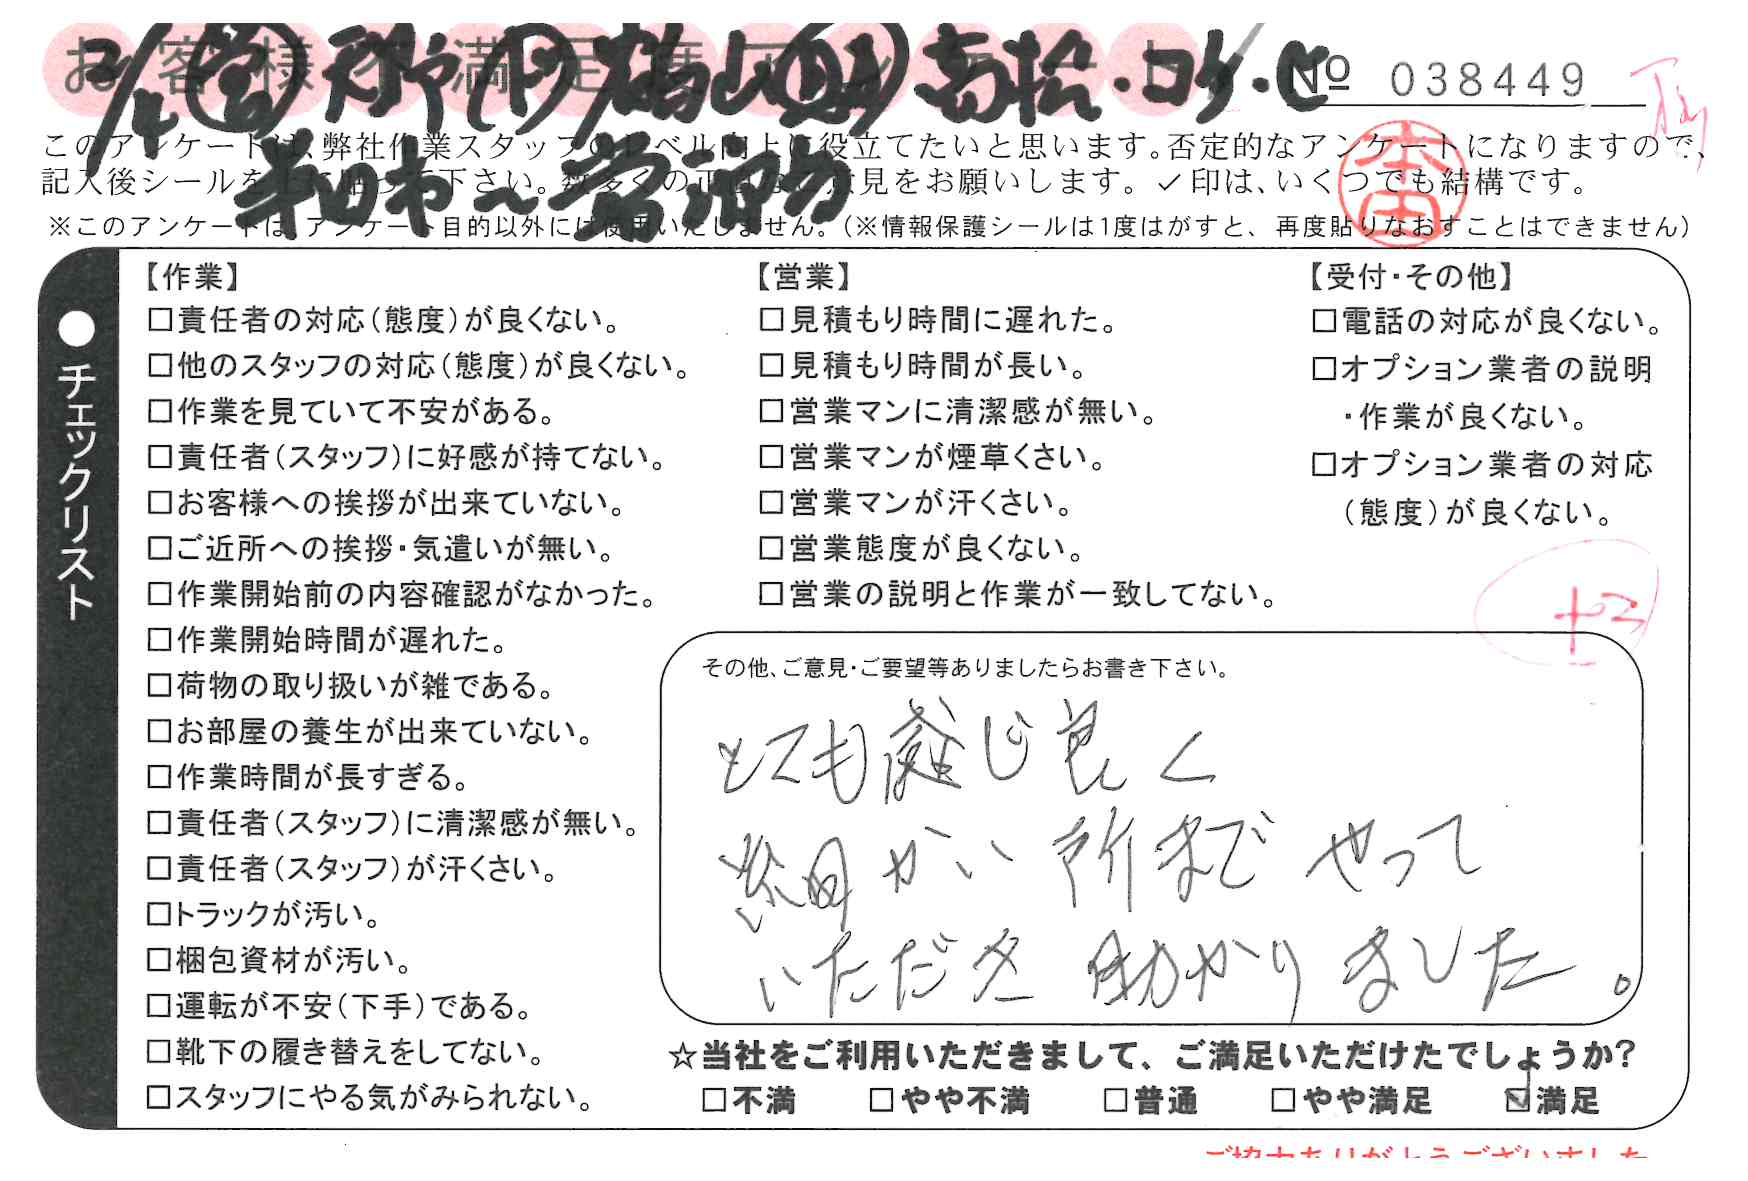 お客様不満足度アンケート
№ 038449
このアンケートは、弊社作業スタッフのレベル向上に役立てたいと思います。否定的なアンケートになりますので、
記入後シールを上に貼って下さい。数多くの正直なご意見をお願いします。✓印は、いくつでも結構です。
※このアンケートは、アンケート目的以外には使用いたしません。(※情報保護シールは1度はがすと、再度貼りなおすことはできません)
●チェックリスト
【作業】
□責任者の対応(態度)が良くない。
□他のスタッフの対応(態度)が良くない。
□作業を見ていて不安がある。
□責任者(スタッフ)に好感が持てない。
□お客様への挨拶が出来ていない。
□ご近所への挨拶・気遣いが無い。
□作業開始前の内容確認がなかった。
□作業開始時間が遅れた。
□荷物の取り扱いが雑である。
□お部屋の養生が出来ていない。
□作業時間が長すぎる。
□責任者(スタッフ)に清潔感が無い。
□責任者(スタッフ)が汗くさい。
□トラックが汚い。
□梱包資材が汚い。
□運転が不安(下手)である。
□靴下の履き替えをしてない。
□スタッフにやる気がみられない。
【営業】
□見積もり時間に遅れた。
□見積もり時間が長い。
□営業マンに清潔感が無い。
□営業マンが煙草くさい。
□営業マンが汗くさい。
□営業態度が良くない。
□営業の説明と作業が一致してない。
【受付・その他】
□電話の対応が良くない。
□オプション業者の説明
・作業が良くない。
□オプション業者の対応
(態度)が良くない。
その他、ご意見・ご要望等ありましたらお書き下さい。
とても感じ良く
細かい所まで やって
いただき 助かりました。
☆当社をご利用いただきまして、ご満足いただけたでしょうか?
□不満 □やや不満 □普通 □やや満足 ☑満足
ご協力ありがとうございました